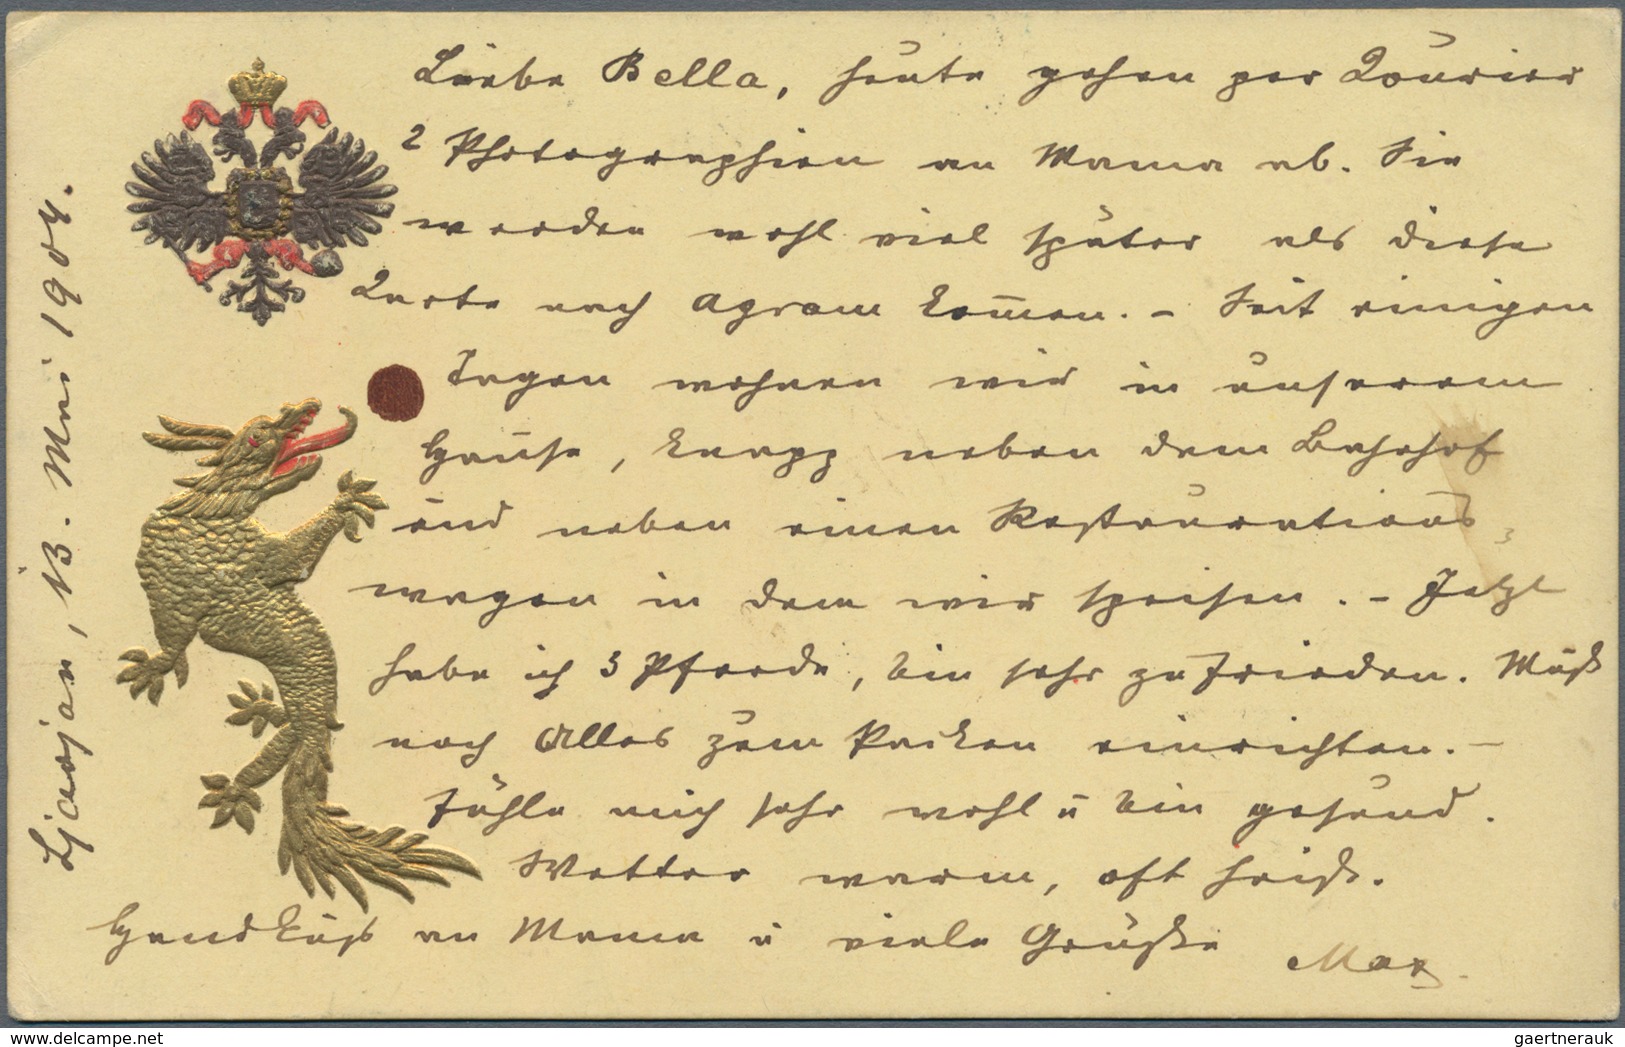 Ljaojan, 13. Mai 1904.
Liebe Bella, heute gehen per Kourier
2 Photographien an Mama ab. Sie
werden wohl viel später als diese
Karte nach Agram kom̄en. – Seit einigen
Tagen wohnen wir in unserem
Hause, knapp neben dem Bahnhof
und neben einen Restaurations
wagen in dem wir speisen. – Jetzt
habe ich 3 Pferde, bin sehr zufrieden. Muß
noch Alles zum Packen einrichten. –
Fühle mich sehr wohl u bin gesund.
Wetter warm, oft heiß.
Handkuß an Mama u viele Grüße
Max
gaertnerauk